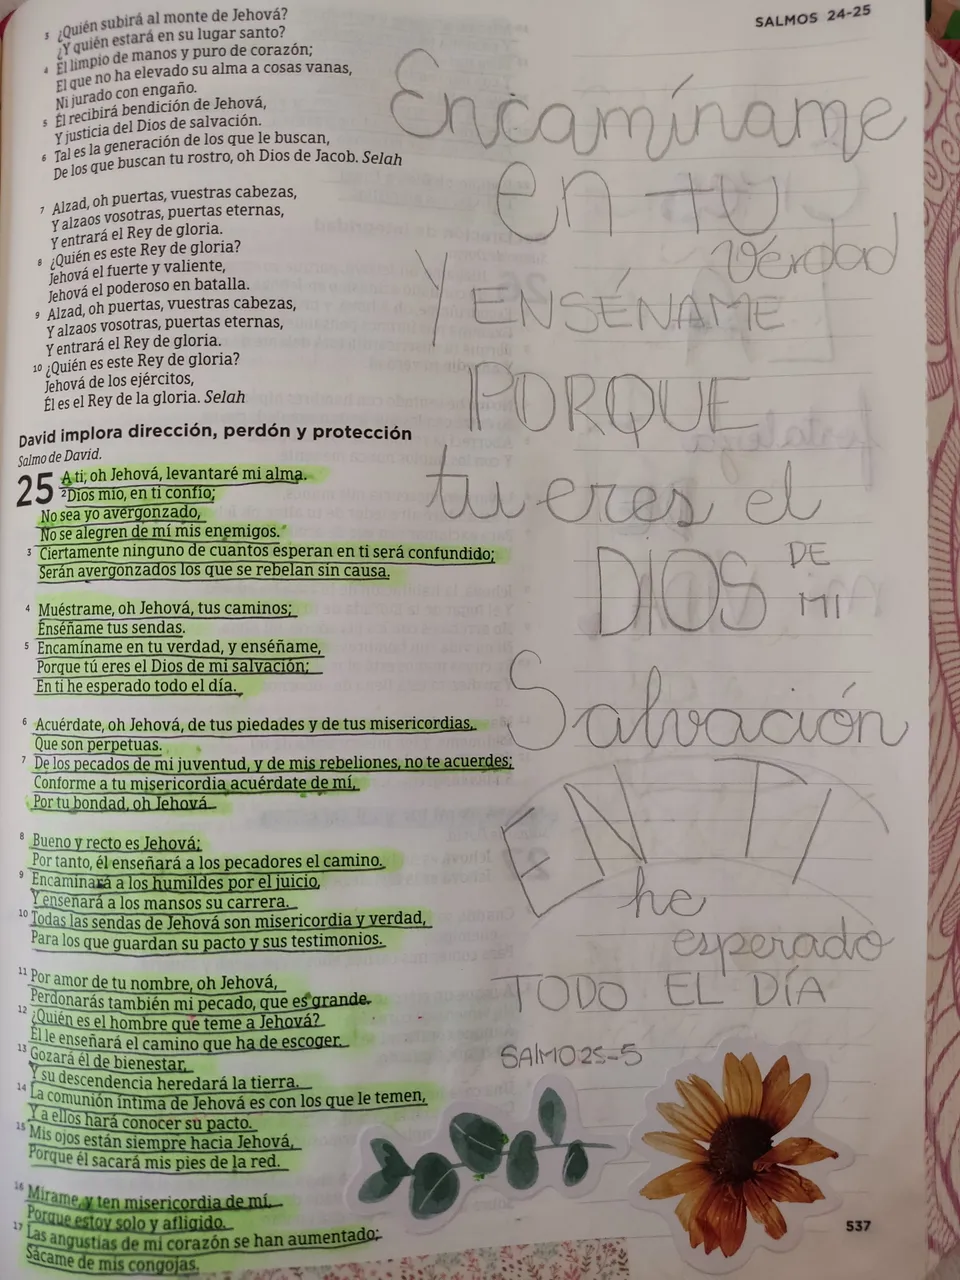 SALMOS 24-25
3 ¿Quién subirá al monte de Jehová?
¿Y quién estará en su lugar santo?
4 El limpio de manos y puro de corazón;
El que no ha elevado su alma a cosas vanas,
Ni jurado con engaño.
5 Él recibirá bendición de Jehová,
Y justicia del Dios de salvación.
6 Tal es la generación de los que le buscan,
De los que buscan tu rostro, oh Dios de Jacob. Selah
7 Alzad, oh puertas, vuestras cabezas,
Y alzaos vosotras, puertas eternas,
Y entrará el Rey de gloria.
8 ¿Quién es este Rey de gloria?
Jehová el fuerte y valiente,
Jehová el poderoso en batalla.
9 Alzad, oh puertas, vuestras cabezas,
Y alzaos vosotras, puertas eternas,
Y entrará el Rey de gloria.
10 ¿Quién es este Rey de gloria?
Jehová de los ejércitos,
Él es el Rey de la gloria. Selah
David implora dirección, perdón y protección
Salmo de David.
25 A ti, oh Jehová, levantaré mi alma.
2 Dios mío, en ti confío;
No sea yo avergonzado,
No se alegren de mí mis enemigos.
3 Ciertamente ninguno de cuantos esperan en ti será confundido;
Serán avergonzados los que se rebelan sin causa.
4 Muéstrame, oh Jehová, tus caminos;
Enséñame tus sendas.
5 Encamíname en tu verdad, y enséñame,
Porque tú eres el Dios de mi salvación;
En ti he esperado todo el día.
6 Acuérdate, oh Jehová, de tus piedades y de tus misericordias,
Que son perpetuas.
7 De los pecados de mi juventud, y de mis rebeliones, no te acuerdes;
Conforme a tu misericordia acuérdate de mí,
Por tu bondad, oh Jehová.
8 Bueno y recto es Jehová;
Por tanto, él enseñará a los pecadores el camino.
9 Encaminará a los humildes por el juicio,
Y enseñará a los mansos su carrera.
10 Todas las sendas de Jehová son misericordia y verdad,
Para los que guardan su pacto y sus testimonios.
11 Por amor de tu nombre, oh Jehová,
Perdonarás también mi pecado, que es grande.
12 ¿Quién es el hombre que teme a Jehová?
Él le enseñará el camino que ha de escoger.
13 Gozará él de bienestar,
Y su descendencia heredará la tierra.
14 La comunión íntima de Jehová es con los que le temen,
Y a ellos hará conocer su pacto.
15 Mis ojos están siempre hacia Jehová,
Porque él sacará mis pies de la red.
16 Mírame, y ten misericordia de mí,
Porque estoy solo y afligido.
17 Las angustias de mi corazón se han aumentado;
Sácame de mis congojas.
Encamíname
en tu
verdad
Y ENSÉÑAME
PORQUE
tu eres el
DIOS DE
MI
Salvación
EN TI
he
esperado
TODO EL DÍA
SAlMO 25-5
537